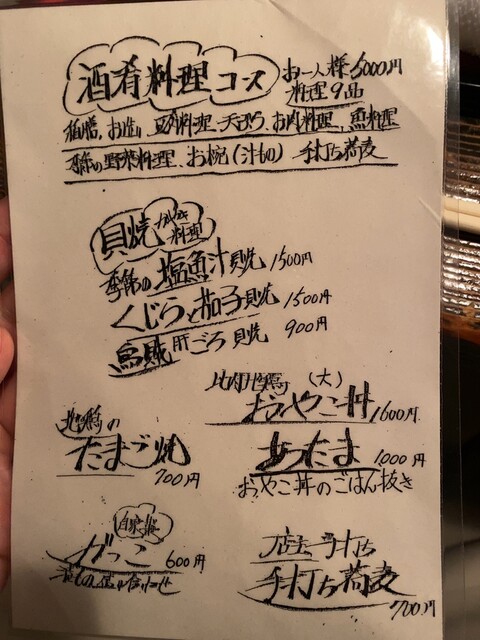 酒肴料理コース
お一人様5000円
料理9品
お造り、豆肉料理、天ぷら、お肉料理、魚料理
季節の野菜料理、お椀(汁物) 手打ち蕎麦
貝焼
料理
季節の塩魚汁貝焼 1500円
くじらと茄子貝焼 1500円
烏賊肝ごろ貝焼 900円
比内地鶏 (大)
おやこ丼 1600円
比内地鶏の
たまご焼
700円
あったま 1000円
おやこ丼のごはん抜き
自家製
がっこ 600円
店主手打ち
手打ち蕎麦
700円